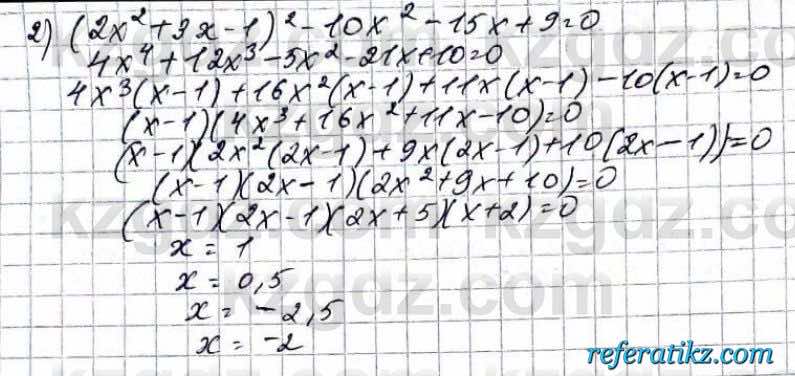 2) (2x² + 3x - 1)² - 10x² - 15x + 9 = 0
4x⁴ + 12x³ - 5x² - 21x + 10 = 0
4x³(x-1) + 16x²(x-1) + 11x(x-1) - 10(x-1) = 0
(x-1)(4x³ + 16x² + 11x - 10) = 0
(x-1)(2x²(2x-1) + 9x(2x-1) + 10(2x-1)) = 0
(x-1)(2x-1)(2x² + 9x + 10) = 0
(x-1)(2x-1)(2x+5)(x+2) = 0
x = 1
x = 0,5
x = -2,5
x = -2
kzgdz.com
referatikz.com